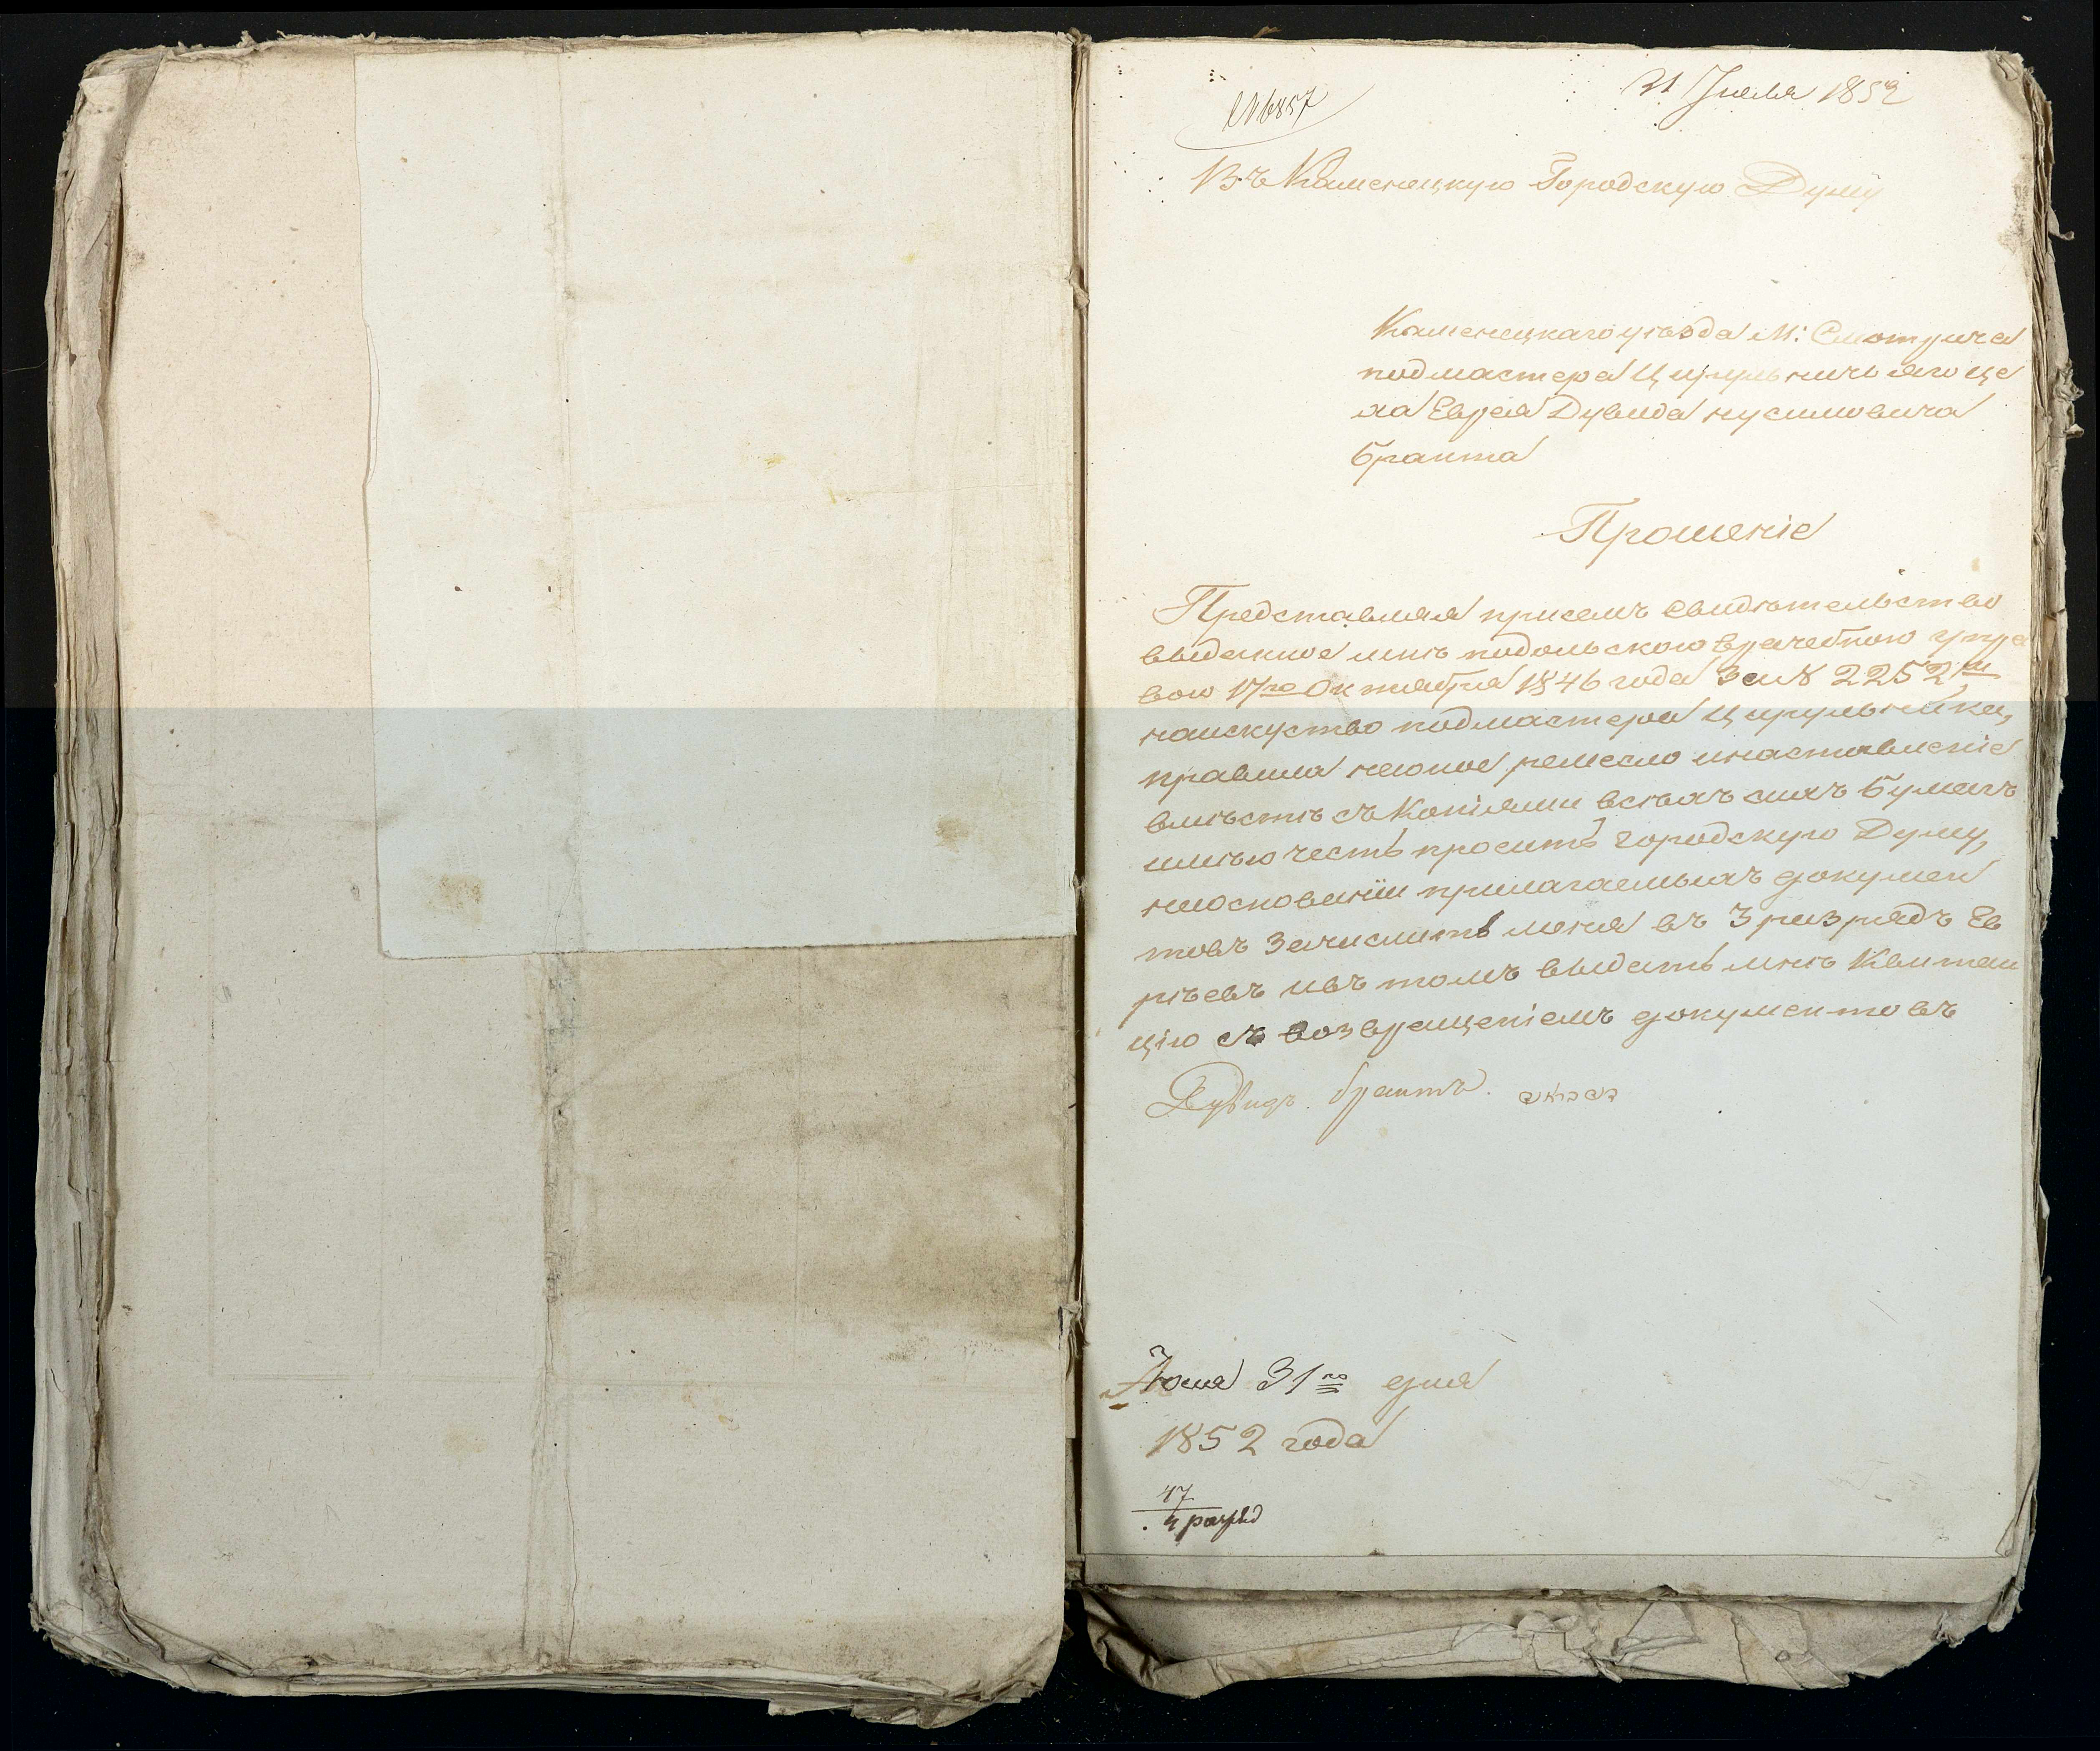 № 6857
31 Июля 1852
Въ Каменецкую Городскую Думу
Каменецкаго уѣзда М: Смотрича
подмастера Цирульничьяго це
ха Еврея Дувида Нусимовича
Бранта
Прошеніе
Представляя присемъ свидѣтельство
выданное мнѣ подольскою врачебною упра
вою 17го Октября 1846 года за № 2252м
наискуство подмастера цирульника,
правила на оное ремесло инаставленіе
вмѣстѣ съ Копіями всѣхъ сихъ бумагъ
имѣю честь просить городскую Думу,
наоснованіи прилагаемыхъ докумен
товъ Зачислить меня въ 3 разрядъ Ев
рѣевъ ивъ томъ выдать мнѣ Квитан
цію съ возвращеніемъ документовъ
Дувидъ брантъ.
Іюля 31го дня
1852 года
47
4 разряд